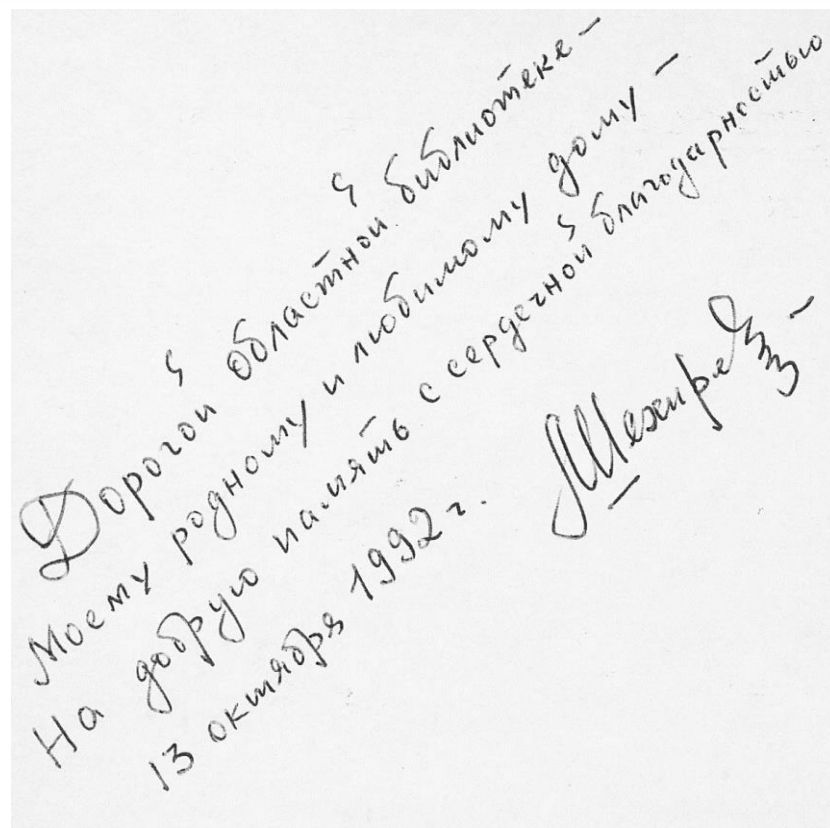 Дорогой областной библиотеке –
Моему родному и любимому дому –
На добрую память с сердечной благодарностью
13 октября 1992 г.